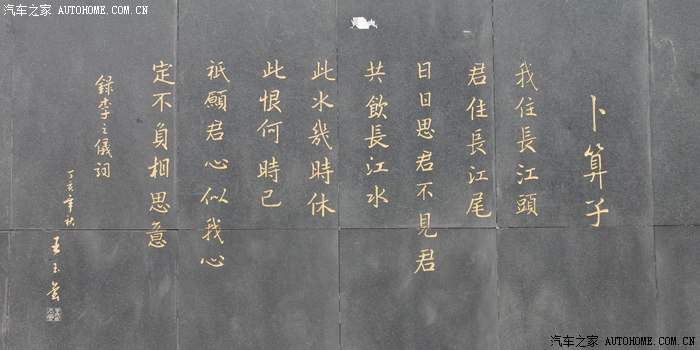 汽车之家 AUTOHOME.COM.CN
卜算子
我住長江頭
君住長江尾
日日思君不見君
共飲長江水
此水幾時休
此恨何時已
祇願君心似我心
定不負相思意
録李之儀詞
丁亥年秋
汽车之家 AUTOHOME.COM.CN